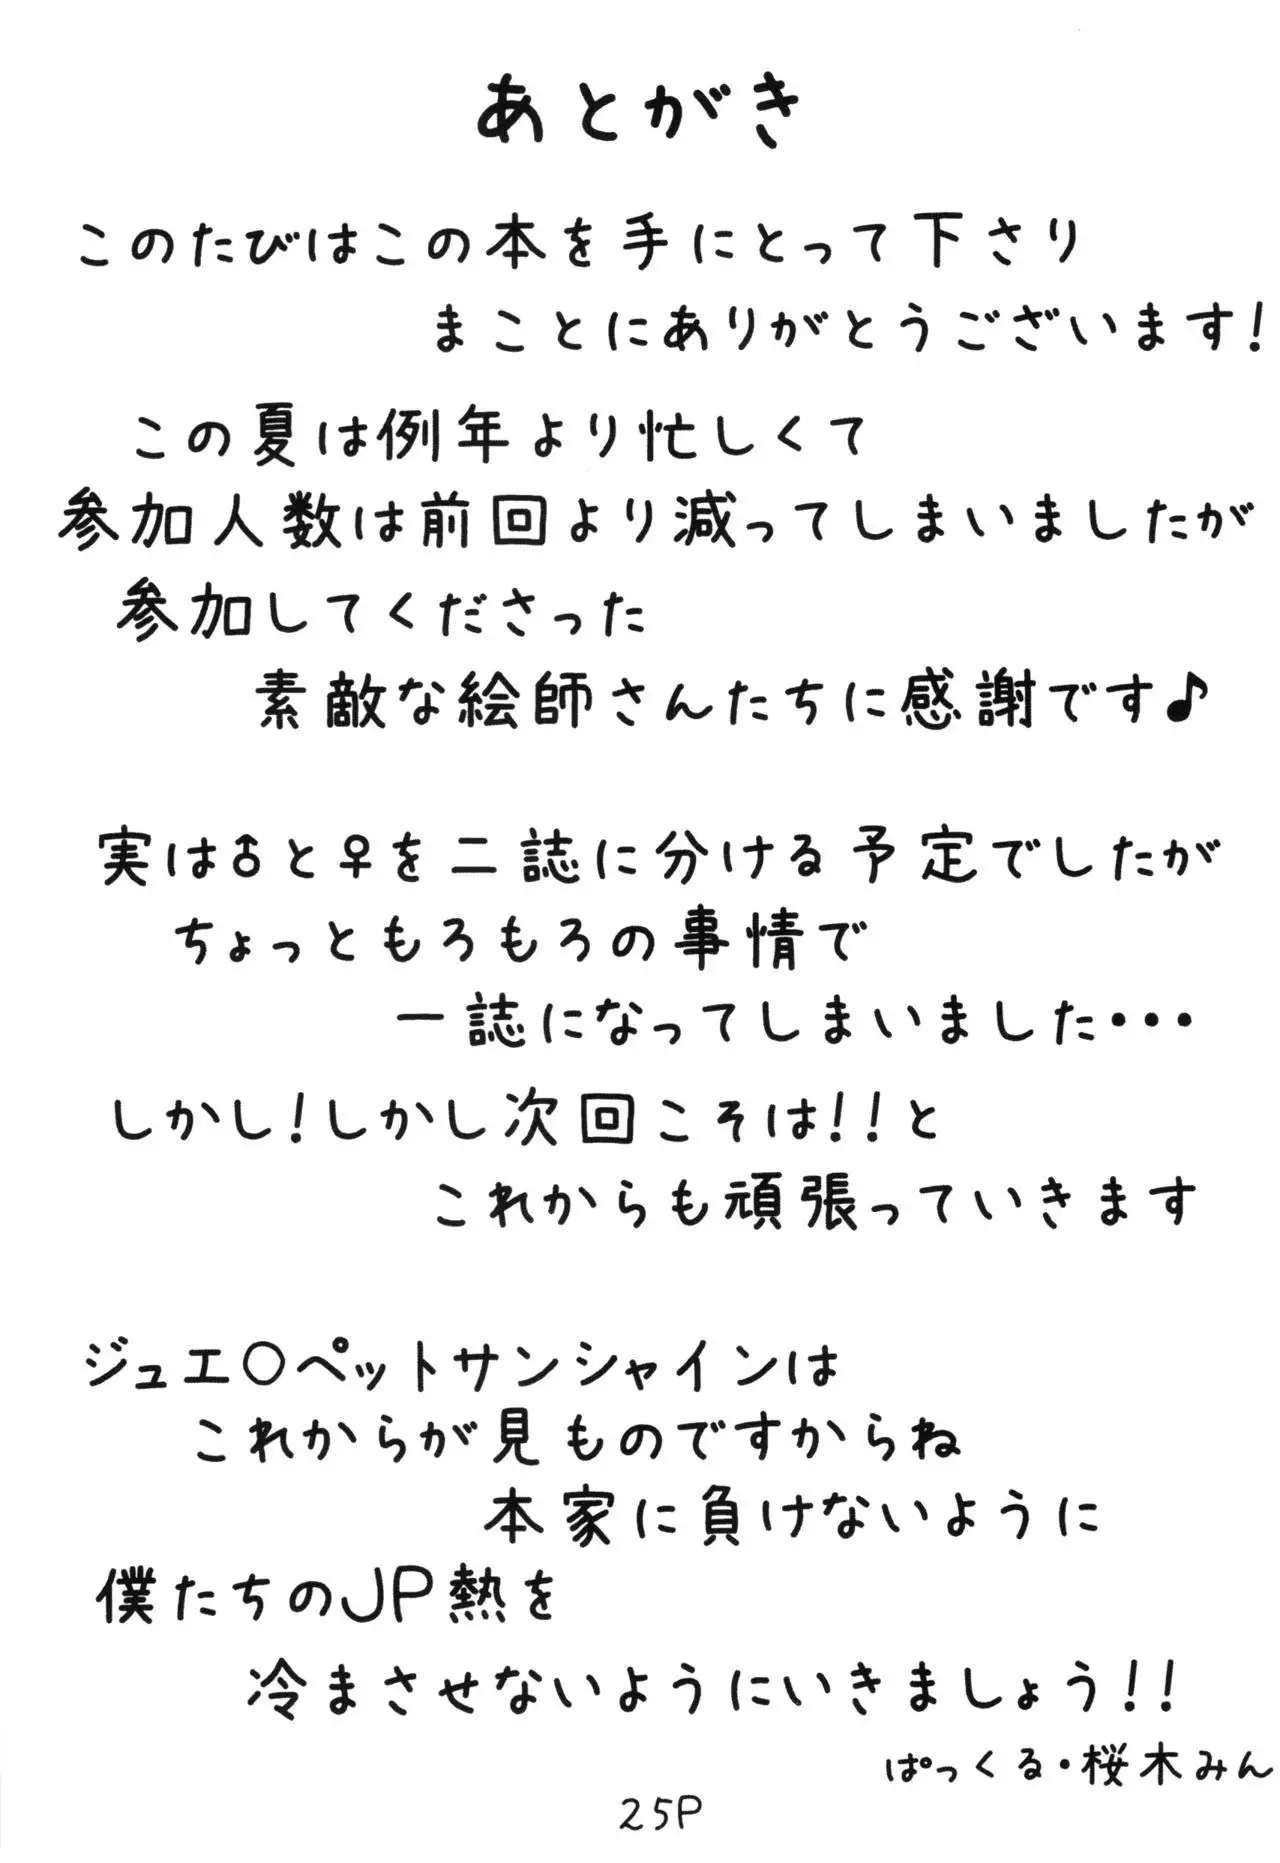 あとがき
このたびはこの本を手にとって下さり
まことにありがとうございます!
この夏は例年より忙しくて
参加人数は前回より減ってしまいましたが
参加してくださった
素敵な絵師さんたちに感謝です♪
実は♂と♀を二誌に分ける予定でしたが
ちょっともろもろの事情で
一誌になってしまいました・・・
しかし!しかし次回こそは!!と
これからも頑張っていきます
ジュエ○ペットサンシャインは
これからが見ものですからね
本家に負けないように
僕たちのJP熱を
冷まさせないようにいきましょう!!
ぱっくる・桜木みん
25P